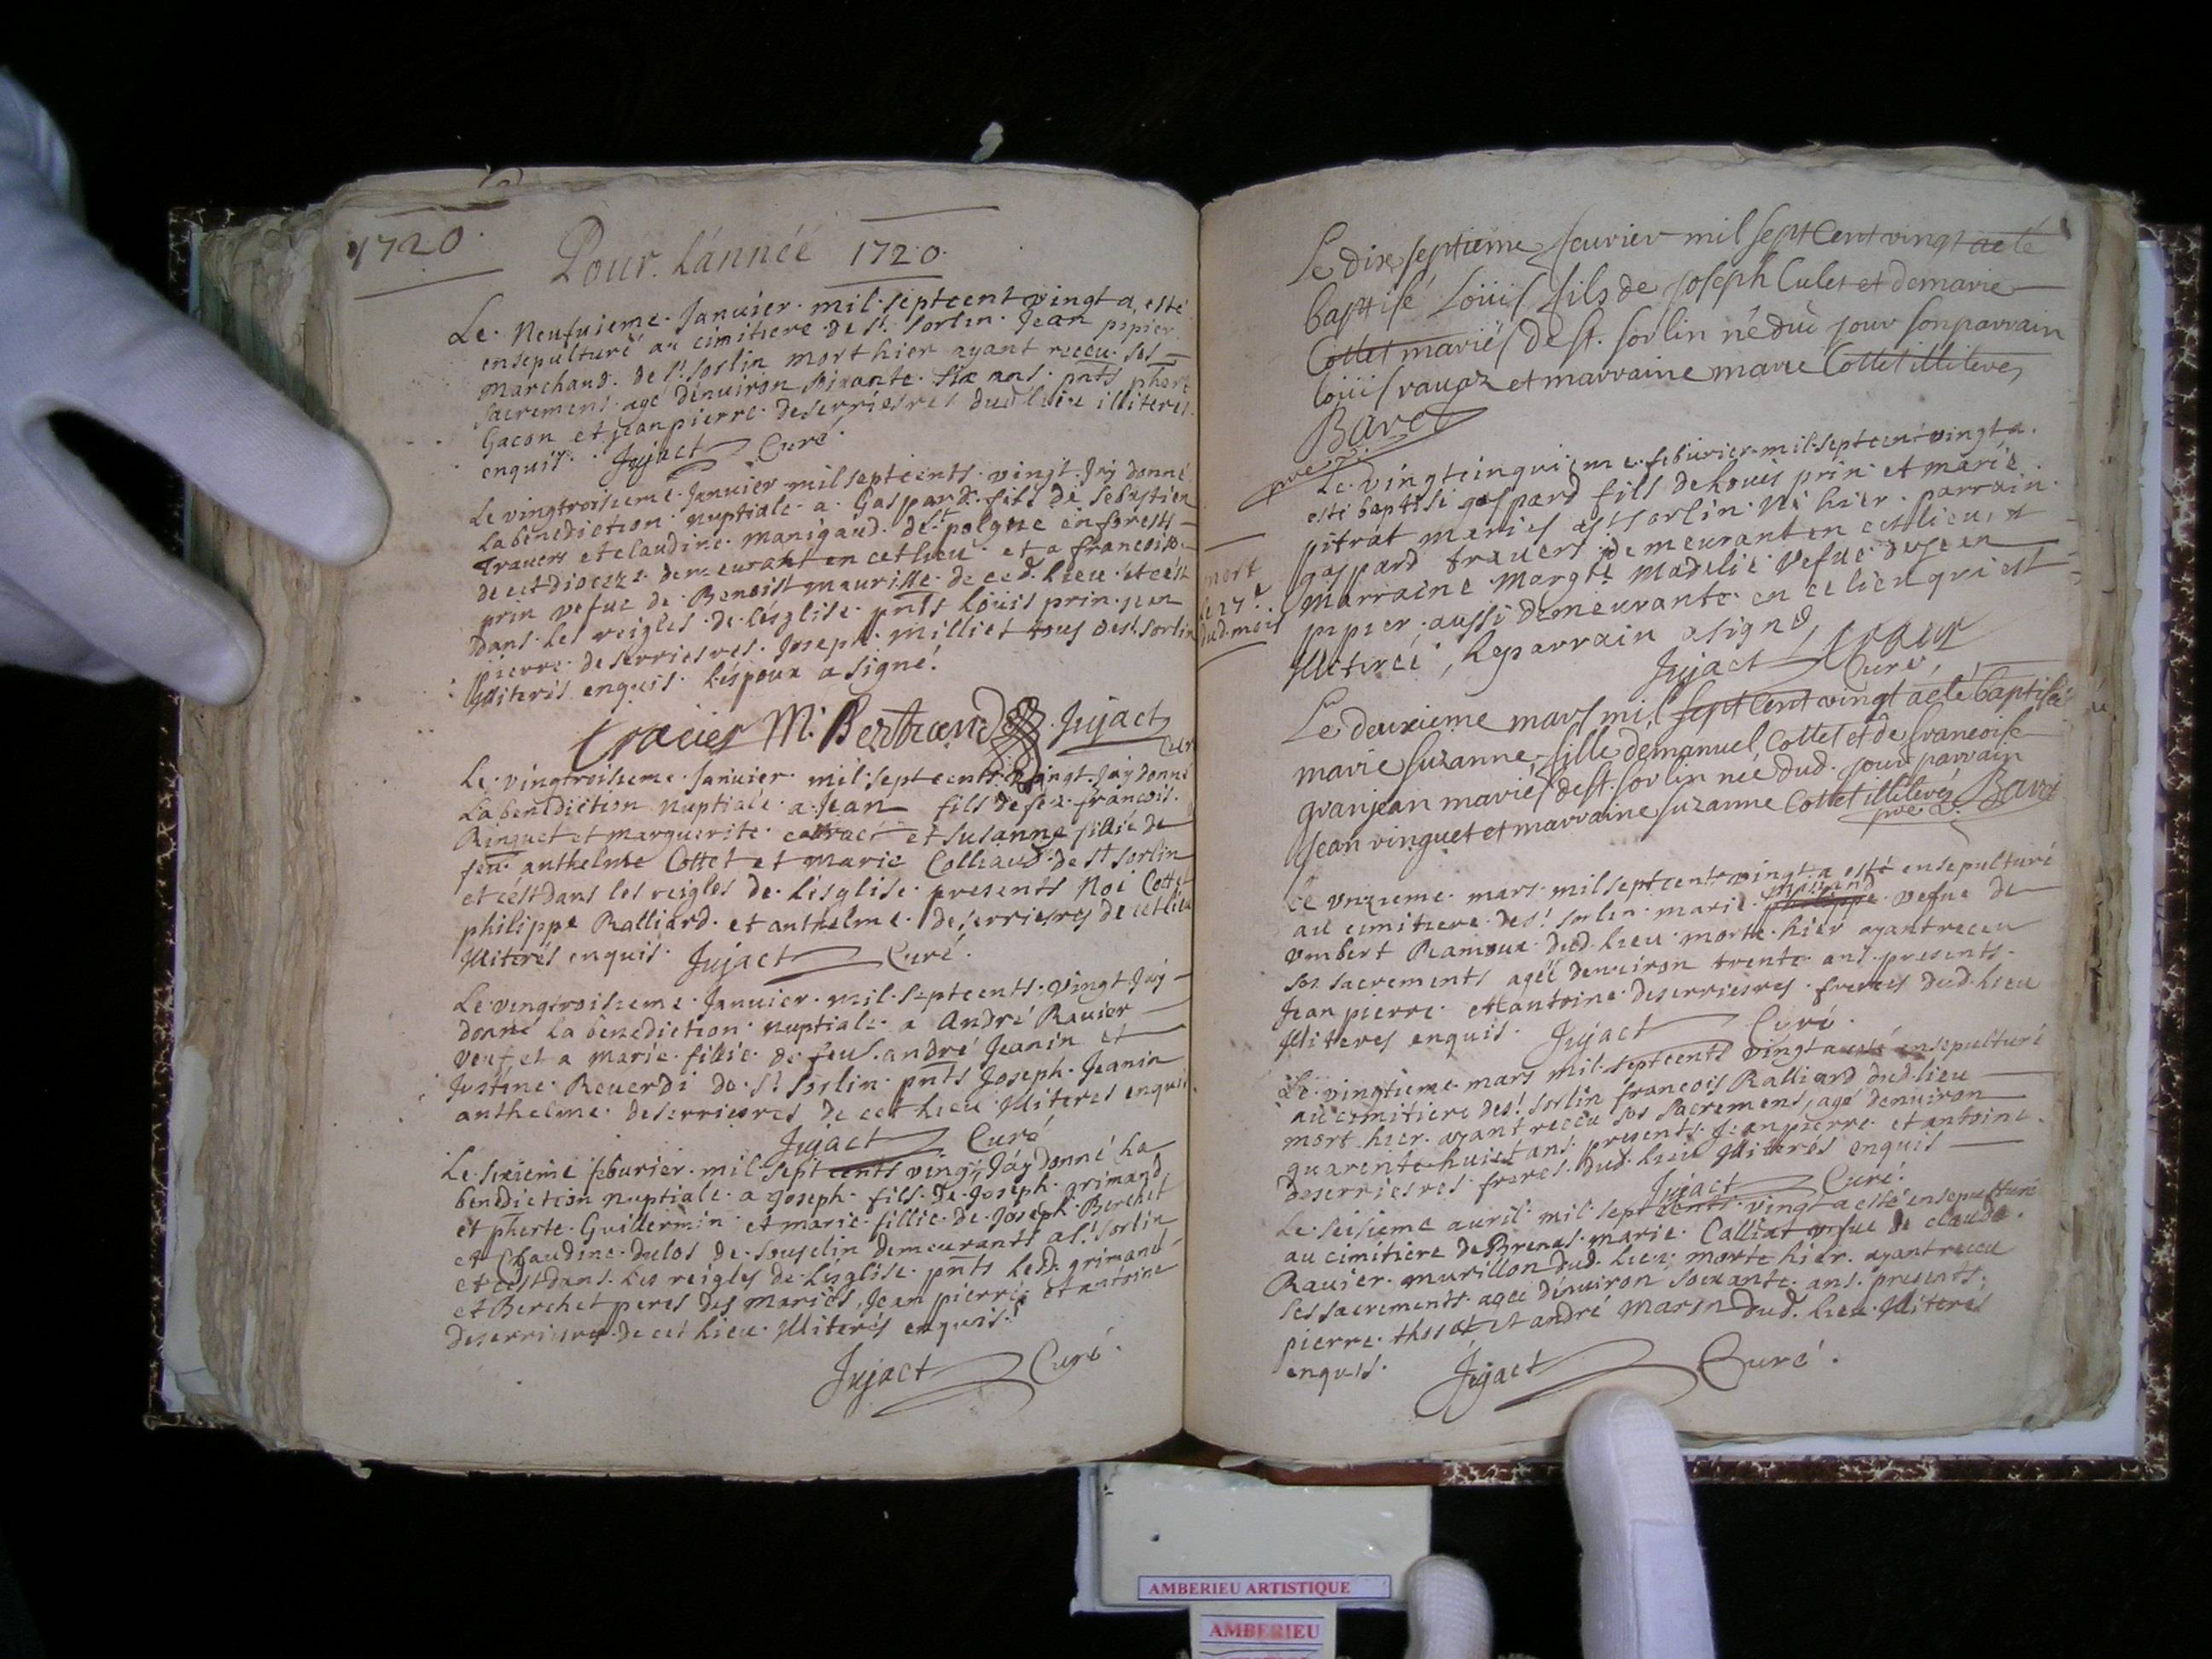 1720.
Pour. l'année 1720.
Le. Neufuieme. Januier. mil. septcent vingt a, esté
ensepulturé au cimitiere de St. Sorlin. Jean pipier
marchand. de St Sorlin mort hier ayant receu. ses
sacremens. agé d'enuiron soixante. six ans. pnts phert
Gacon et jean pierre. deserriesres dud lieu illiteres.
enquis. Jujact Curé.
Le vingtroisieme. Januier mil septcents. vingt. J'ay donné
la benediction nuptiale a. Gaspard. fils de Sebastien
Trauers et claudine. manigaud. de St polgue en forests
de cet diocezze. demeurant en cet lieu. et a francoise
prin vefue de. Benoist maurisse. de ced. lieu. et c'est
dans. les reigles. de. l'esglise. pnts Loüis prin. jean
pierre. deserriesres. Joseph. milliet tous de St. Sorlin
Illiterés enquis. l'espoux a signé.
M. Bertrand Jujact
Cur
Le. vingtroisieme. Januier. mil. septcents. vingt. J'ay donné
la benediction nuptiale. a Jean fils de feu. francois.
Ringuet et marguerite. et Susanne fillie de
feu. anthelme Cottet et marie Colliaud. de St Sorlin
et c'est dans les reigles de. l'esglise. presents Noé Cottet
philippe Ralliard. et anthelme. deserriesres de cet lieu
Illiterés enquis. Jujact Curé.
Le vingtroisieme. Januier. mil. septcents. vingt. J'ay
donné la benediction nuptiale. a André Rauier
veuf et a marie. fillie. de feus. andré Jeanin et
Justine. Reuerdi de. St. Sorlin. pnts Joseph. Jeanin
anthelme. deserriesres de cet lieu Illiteres enquis
Jujact Curé
Le. sixieme feburier. mil. sept cents vingt, J'ay donné la
benediction nuptiale. a Joseph. fils. de. Joseph. grimand
et pherte. Guillermin. et marie. fillie. de. Joseph. Berchet
et Claudine. dulos de. Souselin demeurants a St. Sorlin
et c'est dans. les reigles de. l'esglise. pnts lesd. grimand
et Berchet peres des mariés, Jean pierre et antoine
deserriesres. de cet lieu. Illiterés enquis.
Jujact Curé.
Le dix septieme feurier mil sept Cent vingt a eté
baptisé Loüis fils de Joseph Culet et de marie
Cottet mariés de St. Sorlin né dud jour son parrain
loüis rauaz et marraine marie Cottet illiteres
Baret
pre
Le. vingtcinquieme. feburier. mil. septcent vingt a.
esté baptisé gaspard fils de Louis prin et marie
pitrat mariés de St Sorlin. né hier. parrain.
gaspard trauers demeurant en cet lieu, et
marraine Margte madelie vefue de Jean
pipier, aussi demeurante en ce lieu qui est
Illiterée, le parrain a signé,
Jujact Curé
mort
le 27e.
dud. mois
Le deuxieme mars mil sept Cent vingt a eté baptisée
marie suzanne fille d'emanuel Cottet et de francoise
granjean mariés de St. Sorlin née dud. jour parrain
Jean ringuet et marraine suzanne Cottet illiterés Baret
pre
Le vnzieme. mars. mil septcents vingt. a esté ensepulturé
au cimitiere. de St. Sorlin. marie. philippe. vefue de
vmbert Ramoux. dud. lieu. morte. hier ayant receu
ses sacrements ageé d'enuiron trente. ans. presents.
Jean pierre. et antoine. deserriesres. freres dud. lieu
Illiteres enquis. Jujact Curé.
Le. vingtieme. mars mil. septcents vingt a esté ensepulturé
au cimitiere de St. Sorlin francois Ralliard dud. lieu
mort. hier. ayant receu ses sacremens, agé d'enuiron
quarente huict ans. presents. Jean pierre. et antoine.
deserriesres. freres. dud. lieu Illiterés enquis
Jujact Curé.
Le. seisieme auril. mil. sept cents. vingt a esté ensepulturé
au cimitiere de marie. Calliat vefue de claude.
Rauier. murillon dud. lieu; morte hier. ayant receu
ses sacrements. agee d'enuiron soixante. ans. presents.
pierre. et andré marin dud. lieu. Illiterés
enquis. Jujact Curé.
AMBERIEU ARTISTIQUE
AMBERIEU